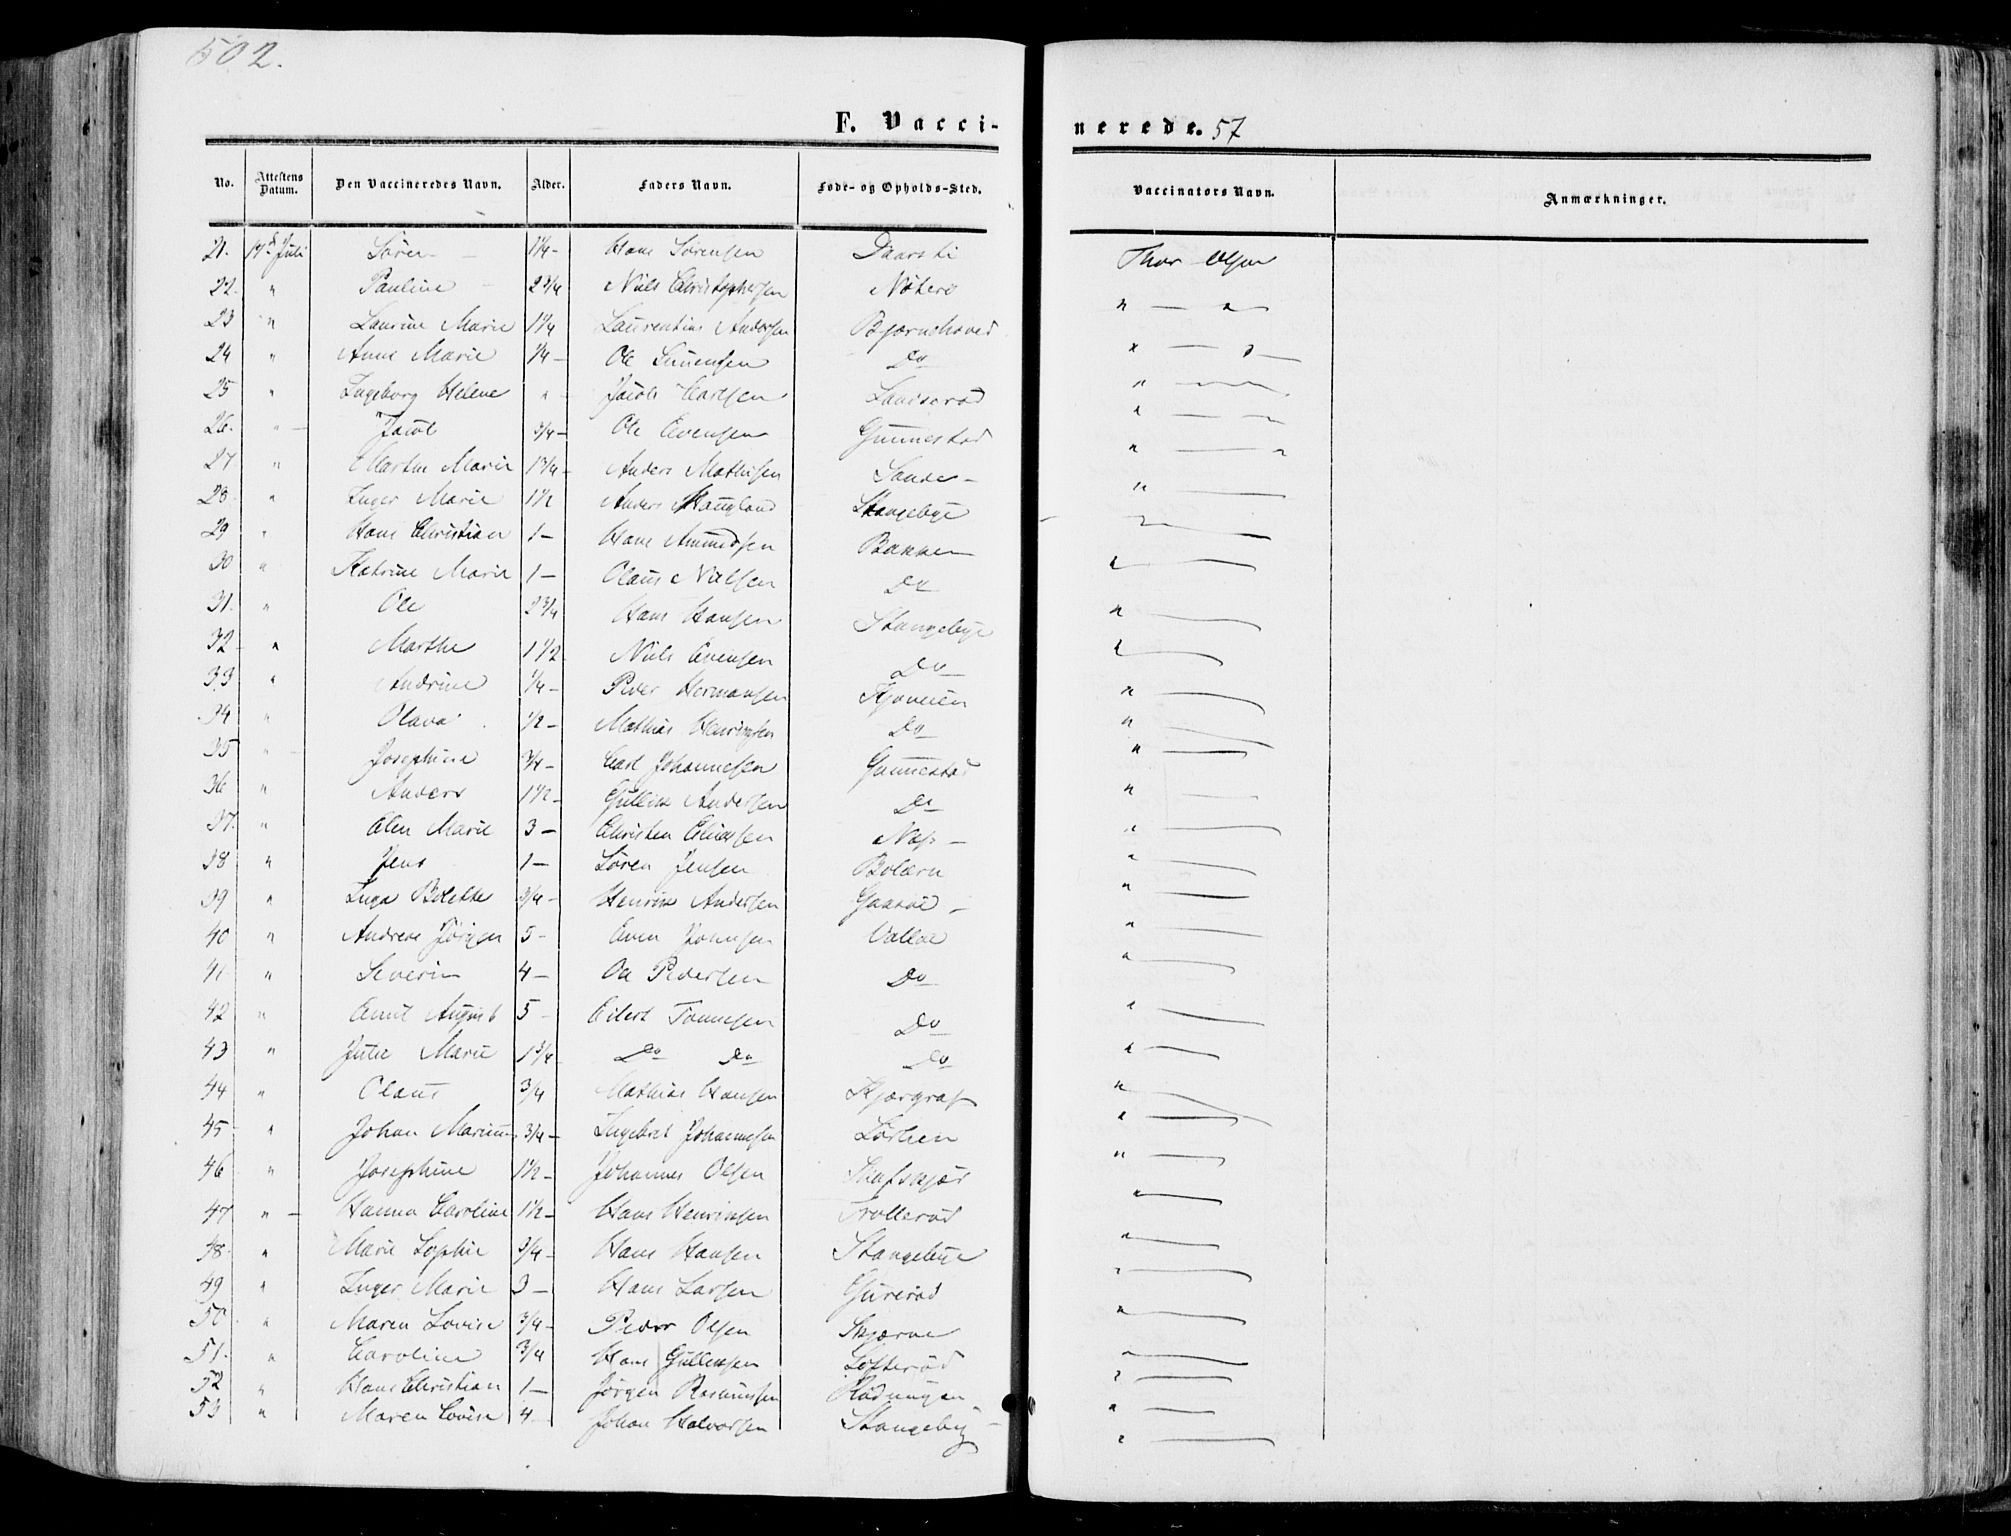 502.
F. Vaccinerede. 57
No. Attestens Datum. Den Vaccineredes Navn. Alder. Faders Navn. Føde- og Opholds-Sted. Vaccinators Navn. Anmærkninger.
21. 14d Juli Søren 1¼ - Hans Sørensen Thor Olsen
22. " Pauline 2¾ Niels Christophersen Nøterø " — "
23 " Laurine Marie 1¼ Laurentius Andersen Bjørnehoved
24 " Anne Marie ¼ - Ole Do
25 " Ingeborg Helene " Jacob Carlsen " —
26. " Jacob ¾ - Ole Evensen Gunnestad " —
27 " Marthe Marie Anders Mathisen Sande - " — "
28 " Inger Marie 1½ Anders Haugland Stangebye " —
29 " Hans Christian 1 - Hans Amundsen Bakken
30 " Katrine Marie 1 - Olaus Nielsen Do " —
31. " Ole 2¾ Hans Hansen Stangebye " —
32 " Marthe 1½ Niels Evensen Do " —
33 " Andrine ¼ - Peder Hermansen " —
34 " Olava ½ - Mathias Henriksen Do " —
35 " Josephine ¾ - Carl Johannesen Gunnestad " —
36 " Anders 1½ - Gullik Andersen Do " —
37. " Olen Marie 3 - Christen Næs - " —
38 " Jens 1 - Søren Jensen Bolærn " —
39 " Inga Bolette ¾ - Henrik Andersen Gaasøe - " —
40 " Andreas Jørgen 5 - Even Valløe " —
41 " Severin 4 - Ole Pedersen Do " —
42 " Emil August 5 - Eilert Tønnesen Do " —
43 " Julie Marie 1¾ - Do Do Do " —
44 " Olaus ¾ Mathias Hansen " —
45 " Johan Marius ¾ - Ingebret Johannesen " —
46 " Josephine 1½ - Johannes Olsen " —
47 " Hanna Caroline 1½ - Hans Henriksen Trollerød " —
48. " Marie Sophie ¾ - Hans Hansen Stangebye " —
49 " Inger Marie 3 - Hans Larsen " —
50 " Maren Lovise ¾ - Peder Olsen Skjærve " —
51. " Caroline ¾ Hans Gulliksen Lofterød " —
52 " Hans Christian 1 - Jørgen Rasmussen " —
53 " Maren Lovise 4 - Johan Halvorsen Stangeby " —